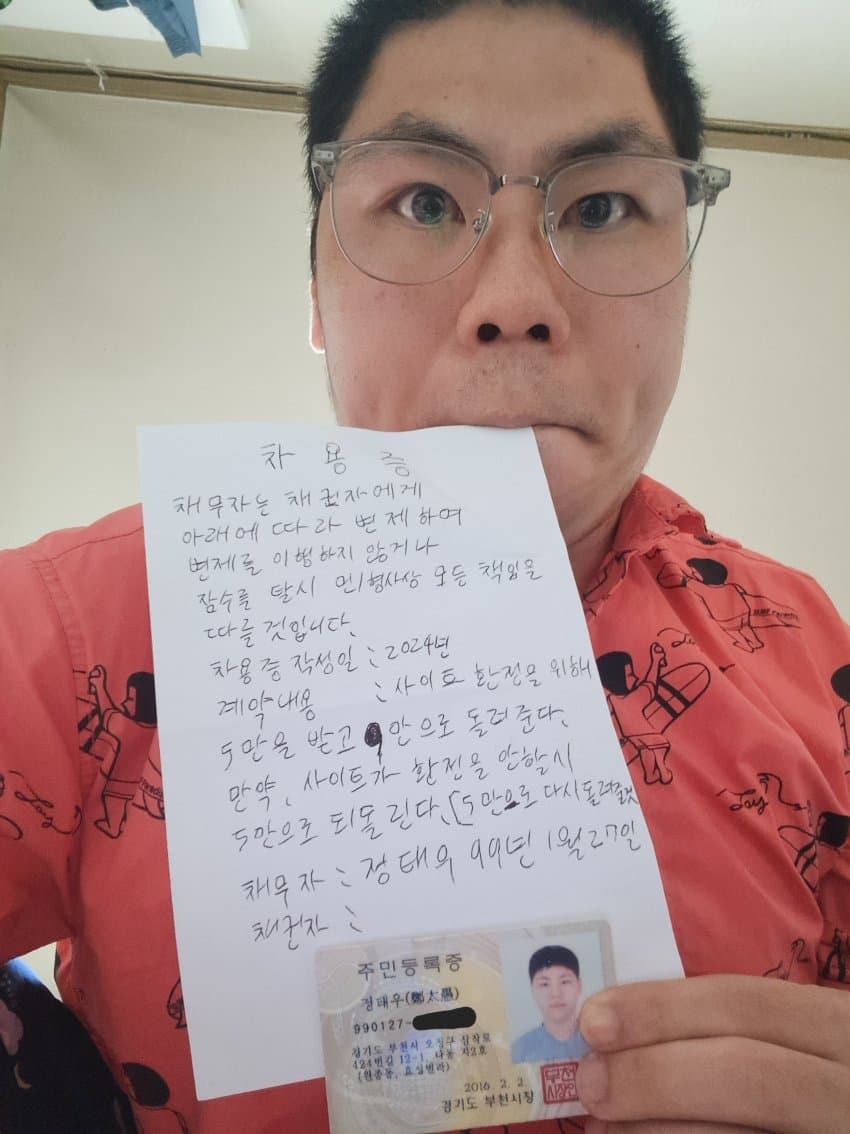 차 용 증
채무자는 채권자에게
아래에 따라 변제하여
변제를 이행하지 않거나
잠수를 탈시 민/형사상 모든 책임을
따를것입니다.
차용증 작성일 : 2024년
계약내용 : 사이트 환전을 위해
5만을 받고 9만으로 돌려준다.
만약, 사이트가 환전을 안할시
5만으로 되돌린다. (5만으로 다시돌려줄것
채무자 : 정태우 99년 1월 27일
채권자 :
주민등록증
정태우(鄭太愚)
990127-
경기도 부천시 오정구 삼작로
424번길 12-1, 나동 지2호
(원종동, 효실빌라)
2016. 2. 2
경기도 부천시장